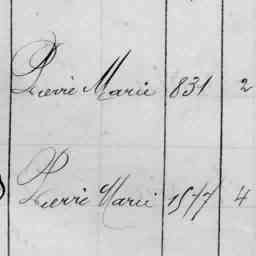 Pierre Marie 831 2
Pierre Marie 1577 4